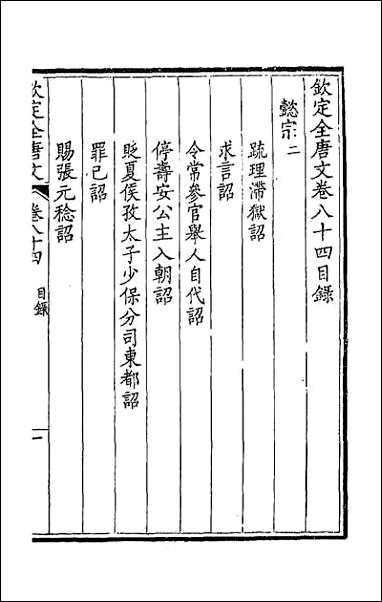 欽定全唐文卷八十四目錄
懿宗二
疏理滯獄詔
求言詔
令常參官舉人自代詔
停壽安公主入朝詔
貶夏侯孜太子少保分司東都詔
罪己詔
賜張元稔詔
欽定全唐文 卷八十四 目錄 一